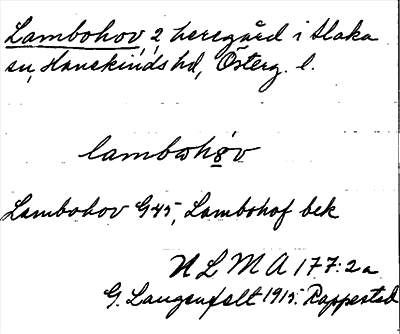 Lambohov, 2 herregård i Slaka
sn, Hanekinds hd, Österg. l.
lambωhǿv
Lambohov G45, Lambohof bek
N L M A 177:2a
G. Langenfelt 1915. Rappestad